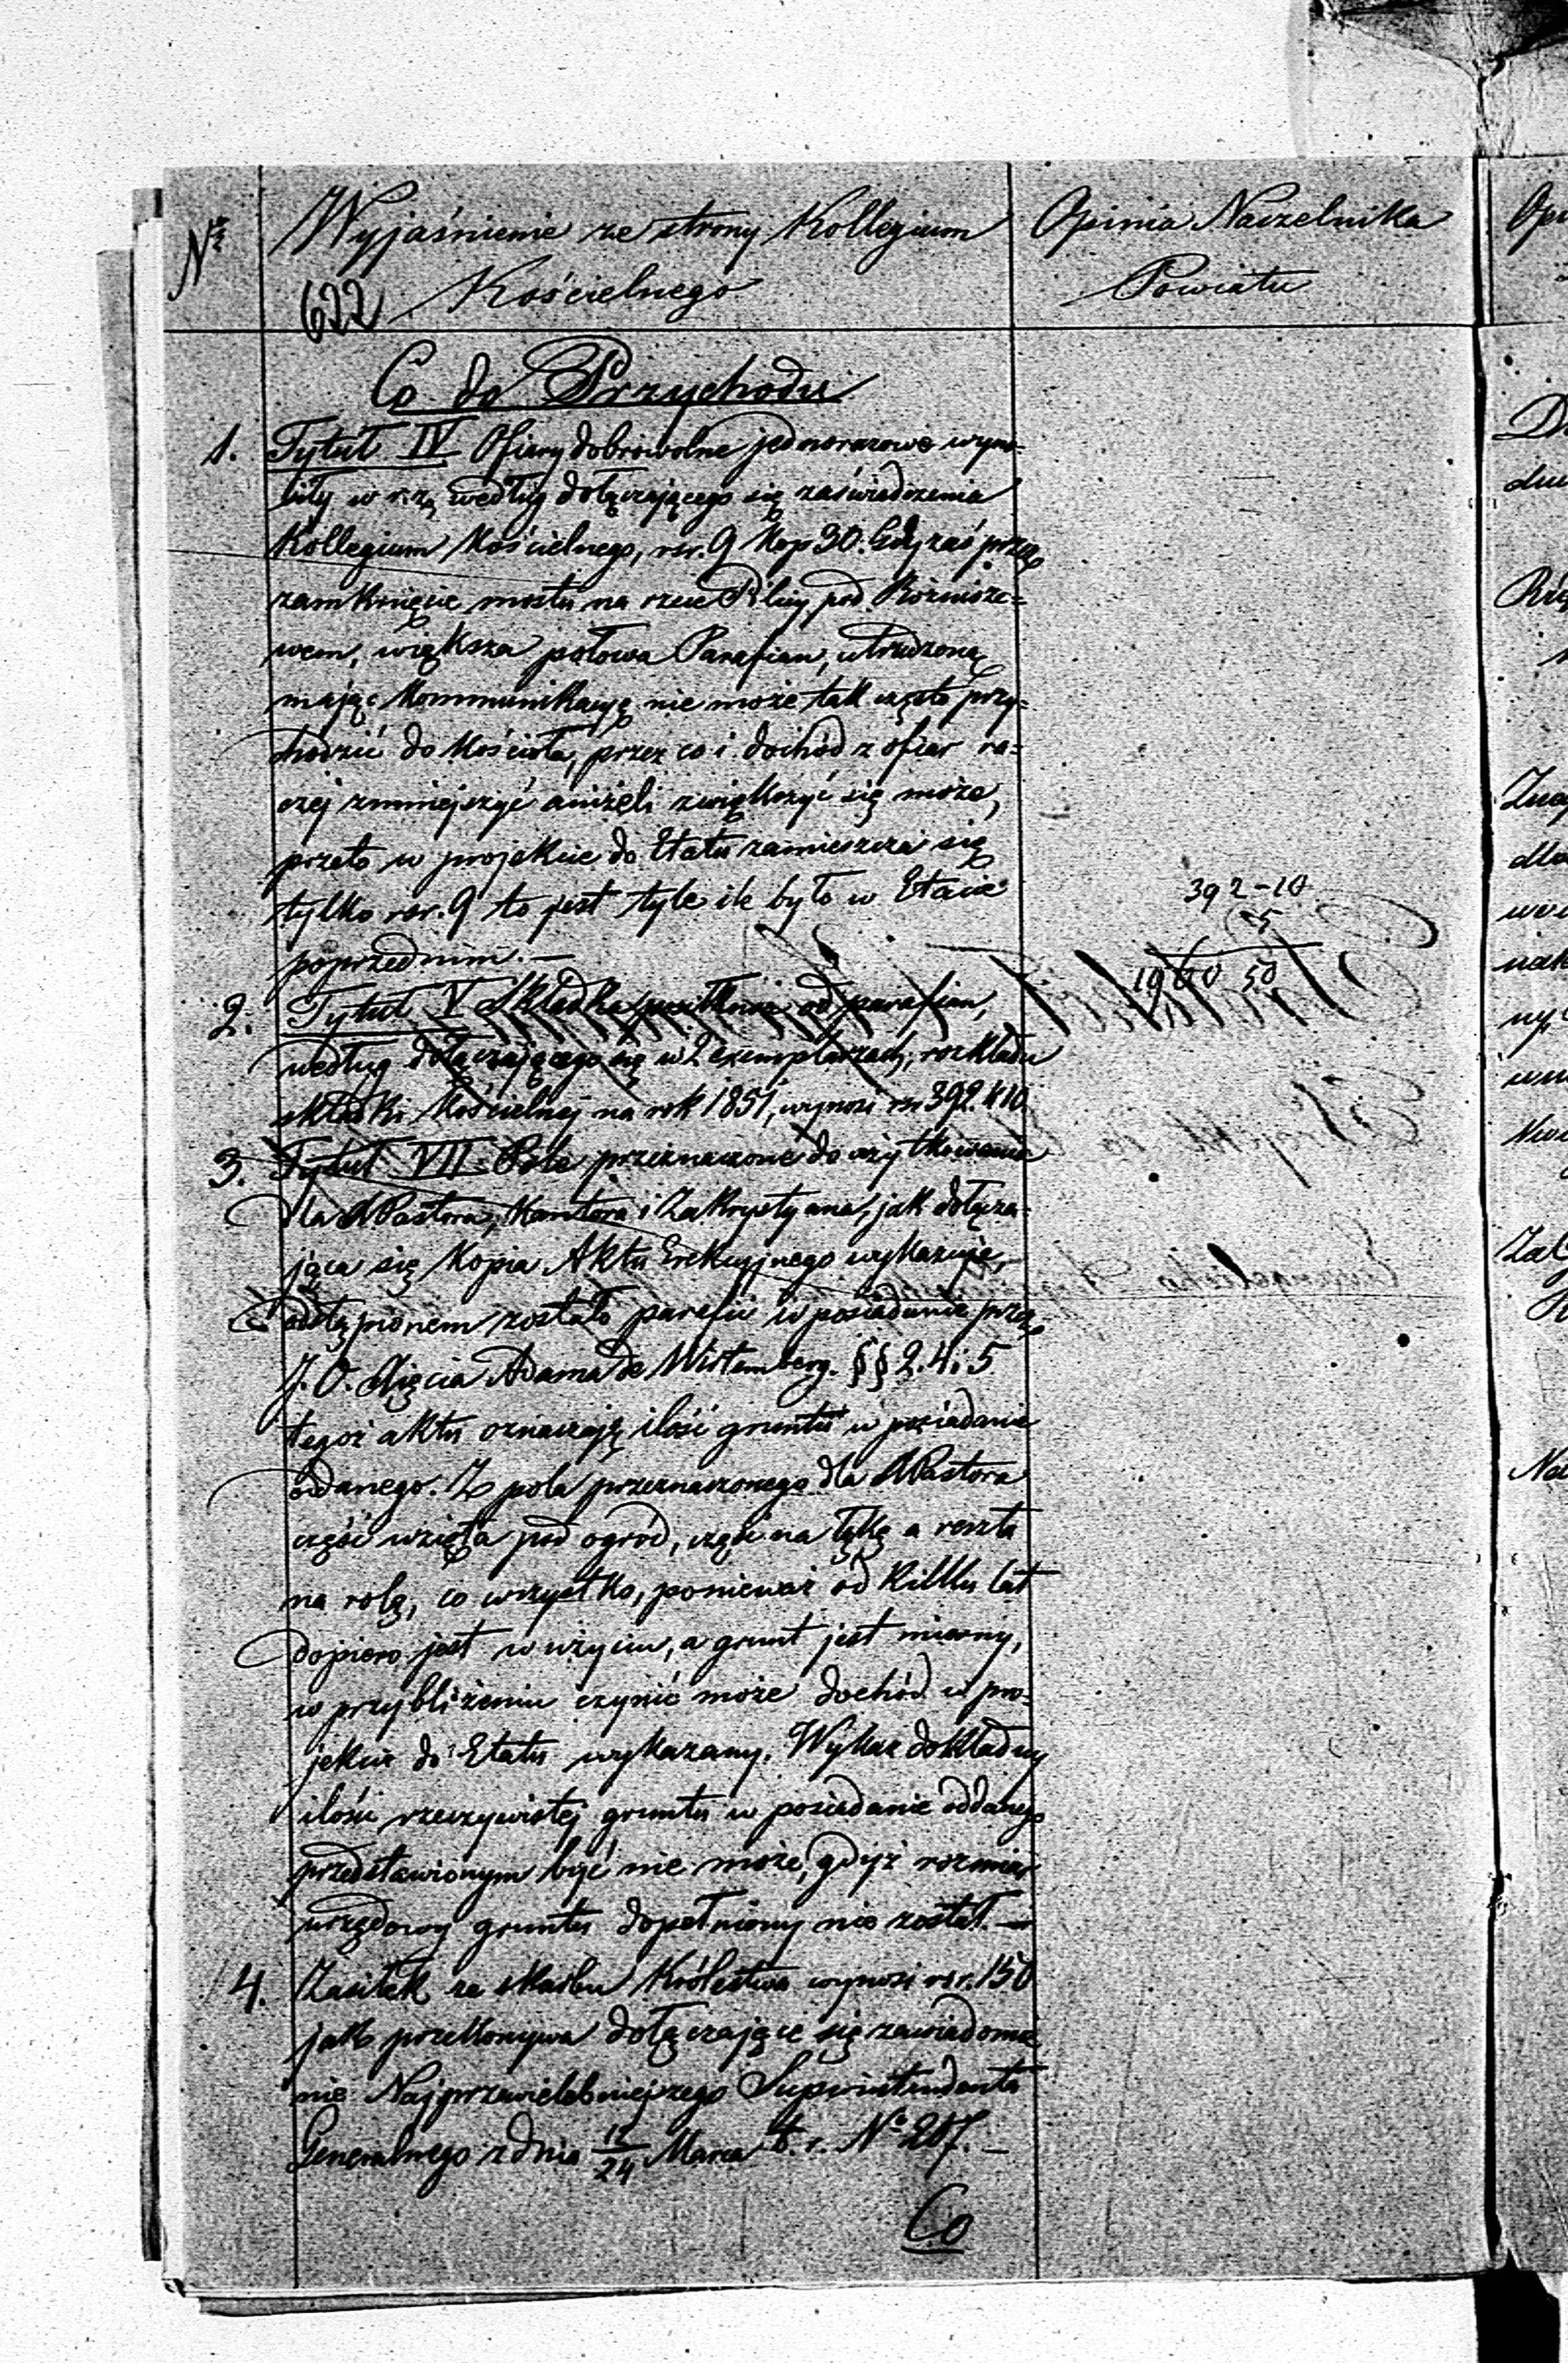 Nr Wyjaśnienie ze strony Kollegium Opinia Naczelnika
Kościelnego Powiatu
622
Co do Przychodu
1. Tytuł IV Ofiary dobrowolne jednorazowe wyno-
siły w r. z. według dołączającego się zaświadczenia
Kollegium Kościelnego, rsr. 9 kop 30. Gdy zaś przez
zamknięcie mostu na rzece Pilicy pod Roznisze=
wem, większa połowa Parafian, utrudzoną
mając kommunikacyę nie może tak często przy=
chodzić do Kościoła, przez co i dochód z ofiar ra=
czej zmniejszyć aniżeli zwiększyć się może,
przeto w projekcie do Etatu zamieszcza się
tylko rsr. 9 to jest tyle ile było w Etacie
poprzednim. —
392-10
5
1960 50
2. Tytuł V Składka posiłkowa od parafian,
według dołączającego się w 2 exemplarzach, rozkładu
składki Kościelnej na rok 1851, wynosi rsr 392. k 10.
3. Tytuł VII Pole przeznaczone do użytkowania
dla Pastora, Kantora i Zakrystyana, jak dołącza=
jąca się kopia Aktu Erekcyjnego wykazuje,
odstąpionem zostało parafii w posiadanie przez
J. O. Xięcia Adama de Wirtemberg. §§ 2. 4 i 5
tegoż aktu oznaczają ilość gruntu w posiadanie
oddanego. Z pola przeznaczonego dla Pastora
część wzięta pod ogród, część na łąkę a reszta
na rolę, co wszystko, ponieważ od kilku lat
dopiero jest w użyciu, a grunt jest mierny,
w przybliżeniu czynić może dochód w pro=
jekcie do Etatu wykazany. Wykaz dokładny
ilości rzeczywistej gruntu w posiadanie oddanego
przedstawionym być nie może, gdyż rozmiar
urzędowy gruntu dopełniony nie został. —
4. Zasiłek ze skarbu Królestwa wynosi rsr. 150
jak przekonywa dołączające się zawiadomie
nie Najprzewielebniejszego Superintendenta
Generalnego z dnia 12/24 Marca b. r. No 207. —
Co